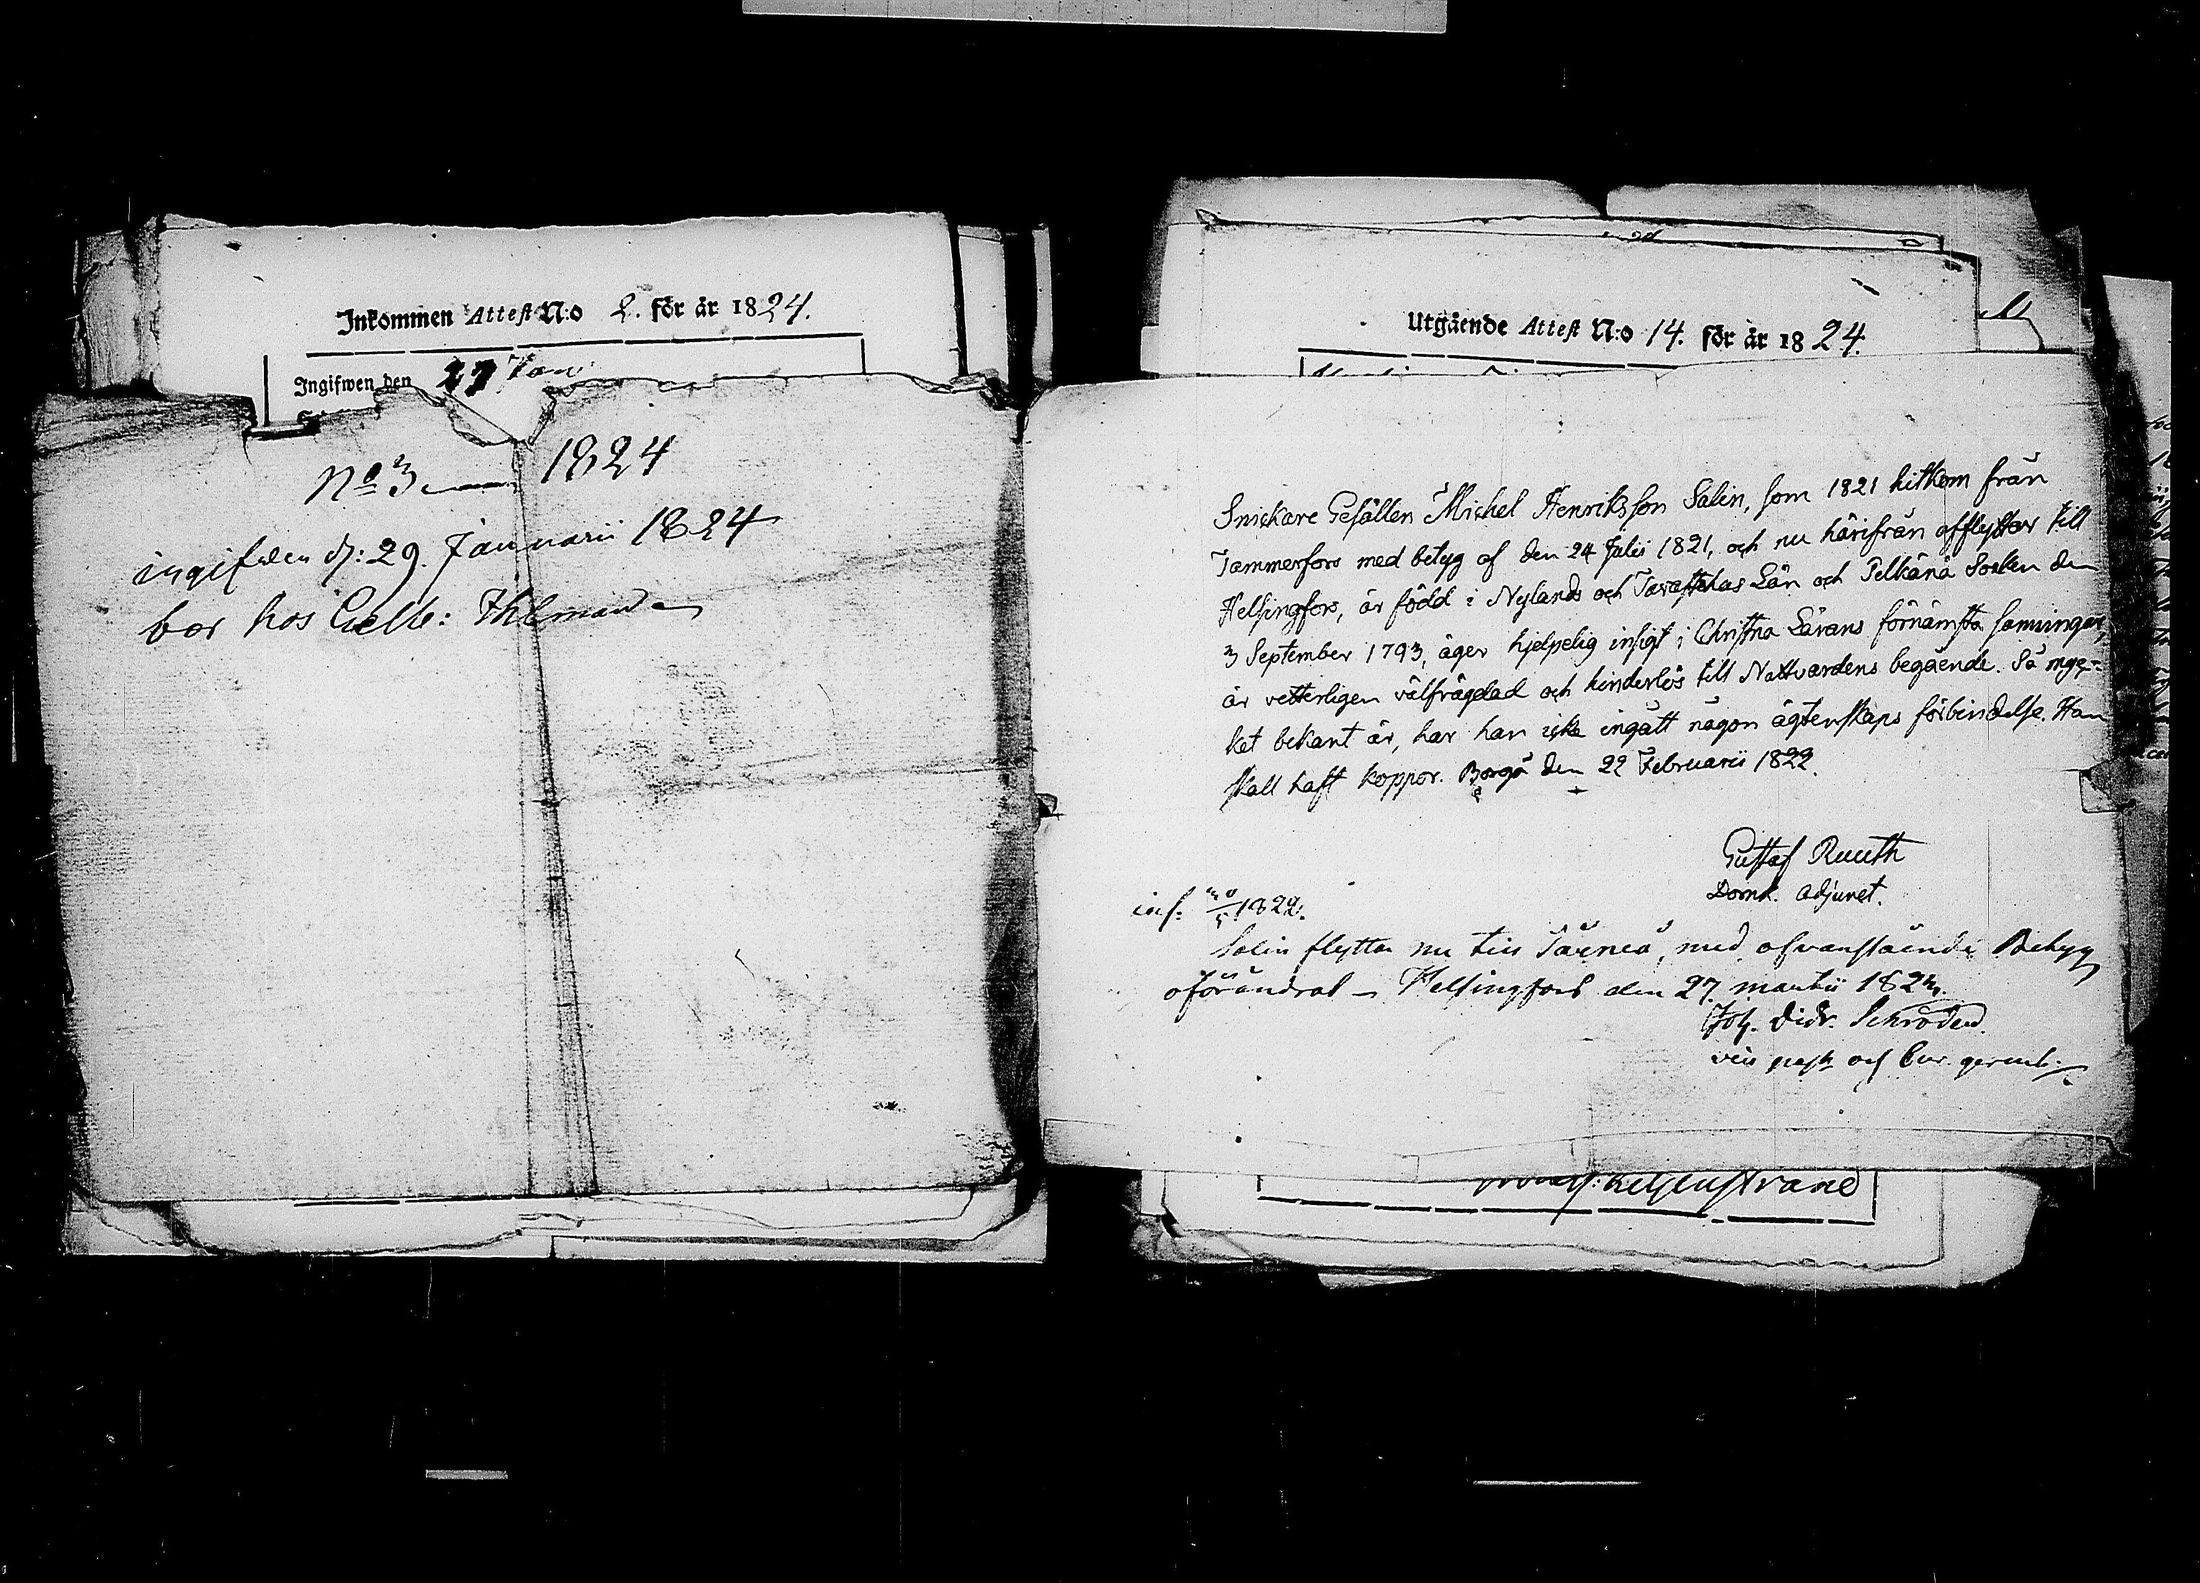 Inkommen Attest N:o 2. för år 1824.
Ingifwen den 27 Jan:
No 3 1824
ingifven d: 29. Januarii 1824
bor hos Gelb: Thlman
Utgående Attest N:o 14. för år 1824.
Snickare Gesällen Michel Henriksson Salin, som 1821 hitkom från
Tammerfors med betyg af den 24 Julii 1821, och nu härifrån afflyttar till
Helsingfors, är född i Nylands och Tavastehus Län och Pelkänä Socken den
3 September 1793, äger hjelpelig insigt i Christna Lärans förnämsta sanningar,
är vetterligen välfrägdad och hinderlös till Nattvardens begående. Så myc-
ket bekant är, har han icke ingått någon ägtenskaps förbindelse. Han
skall haft koppor. Borgå den 22 Februarii 1822.
Gustaf Ruuth
Domk. Adjunct.
inf: 1822.
Salin flyttar nu till Torneå, med ofvanstående Betyg
oförändrat – Helsingfors den 27 Martii 1823.
Joh. Didr. Schröder.
vice past. och Cur. gerens